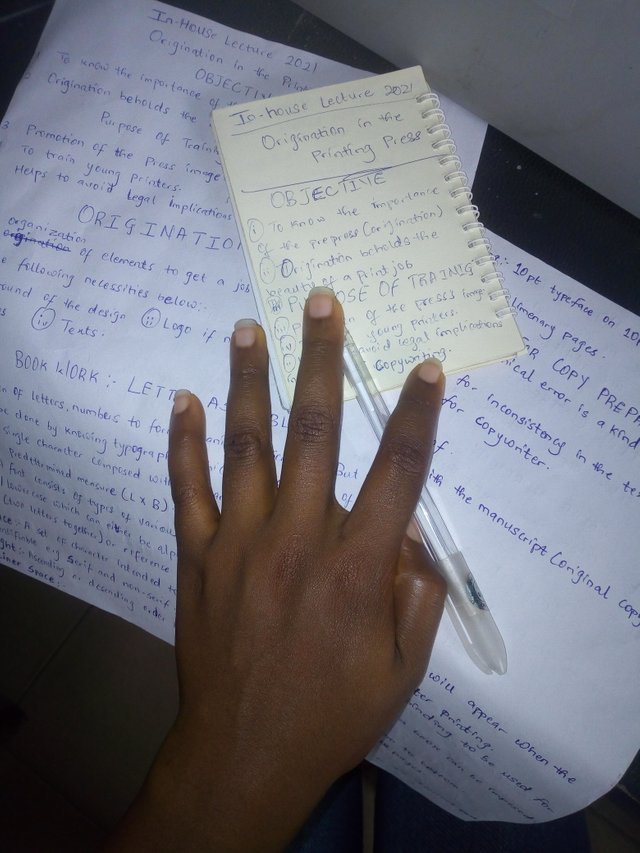 In-House Lecture 2021
Origination in the
To know the importance of
OBJECTIV
Origination beholds the
Purpose of Traini
3 Promotion of the Press image
To train young printers.
Helps to avoid legal implications
ORIGINATIO
organization
of elements to get a job
e following necessities below:-
ound of the design (ii) Logo if n
(iii) Texts.
BOOK WORK:- LETT
n of letters, numbers to for
be done by knowing typograph
single character composed with
Predetermined measure (L x B)
font consists of types of variou
lowercase which can either be alp
(two letters together) or reference
A set of character intended to
e.g Serif and non-serif
ascending or descending order
In-house Lecture 2021
Origination in the
Printing Press
OBJECTIVE
(i) To know the importance
of the prepress (origination)
(ii) Origination beholds the
beauty of a print job
PURPOSE OF TRAINIG
of the press's image
young printers.
avoid legal implications
Copywriting.
10pt typeface on 10p
limenary pages.
OR COPY PREPA
ical error is a kind
for inconsistency in the te
for copywriter.
f.
ith the manuscript (original copy
will appear when the
ter printing.
to be used for